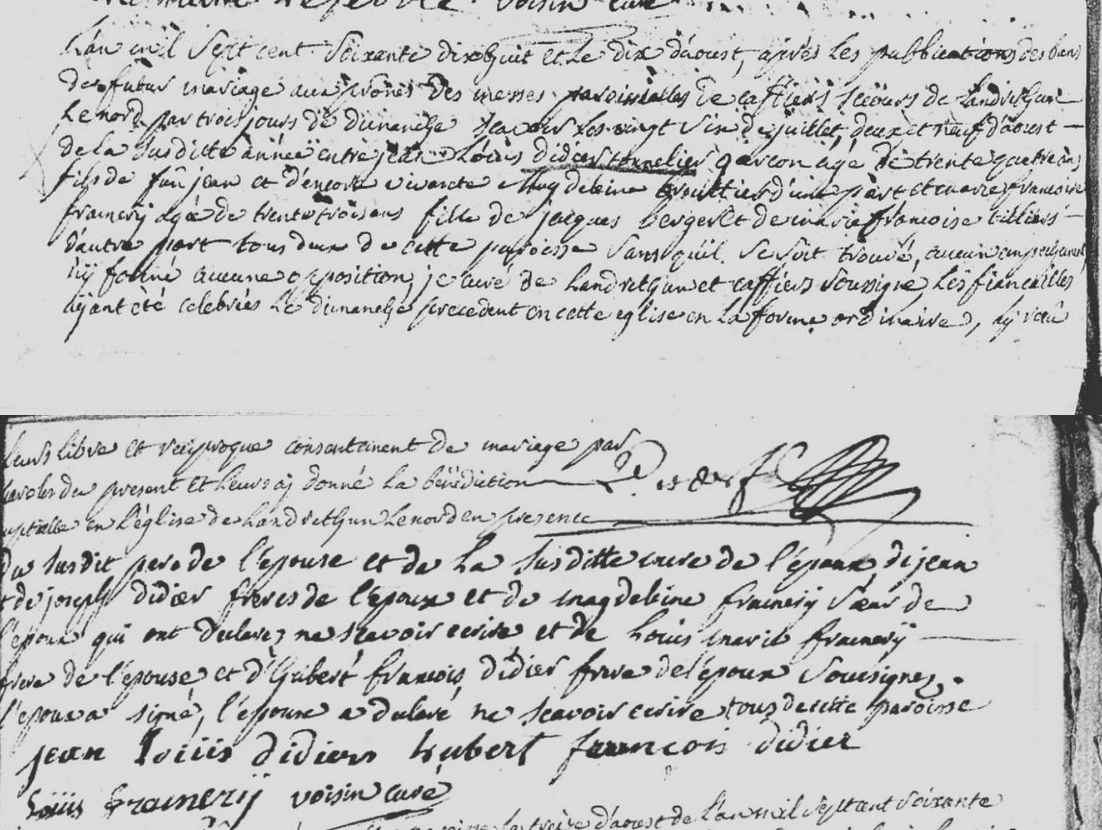 voisin curé
L'an mil sept cent soixante dixhuit et le dix d'aoust, après les publications des bans
de futur mariage aux prônes des messes paroissialles de caffiers secours de Landrethun
Le nord par trois jours de dimanche sçavoir les vingt six de juillet, deux et neuf d'aoust
de la susditte année entre jean Loüis didier tonnelier garçon agé de trente quatre ans
fils de feu jean et d'encore vivante Magdeleine d'une part et marie françoise
framery agée de trente trois ans fille de jacques berger et de marie françoise
d'autre part tous deux de cette paroisse sans qu'il se soit trouvé, aucun empechement
nÿ formé aucune opposition, je curé de Landrethun et caffiers soussigné, les fiancailles
aÿant été celebrées le dimanche precedent en cette eglise en la forme ordinaire, aÿ reçu
leurs libre et reciproque consentement de mariage par
paroles de present et leurs aÿ donné la bénédiction
nuptialle en l'église de Landrethun Le nord en presence
du susdit pere de l'epouse et de La susditte mere de l'époux de jean
et de joseph didier freres de l'epoux et de magdeleine framery sœur de
l'epoux qui ont declarez ne scavoir ecrire et de Loüis marie framerÿ
frere de l'epouse et d'hubert françois didier frere de l'époux soussignez.
l'epoux a signé, l'epouse a declaré ne scavoir ecrire tous de cette paroisse
jean loüis didier hubert françois didier
Loüis framerÿ voisin curé
treize d'aoust de l'an mil sept cent soixante